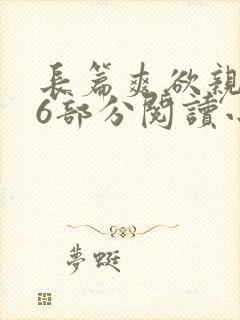 長篇爽欲親
6部分閱讀小
夢蜓